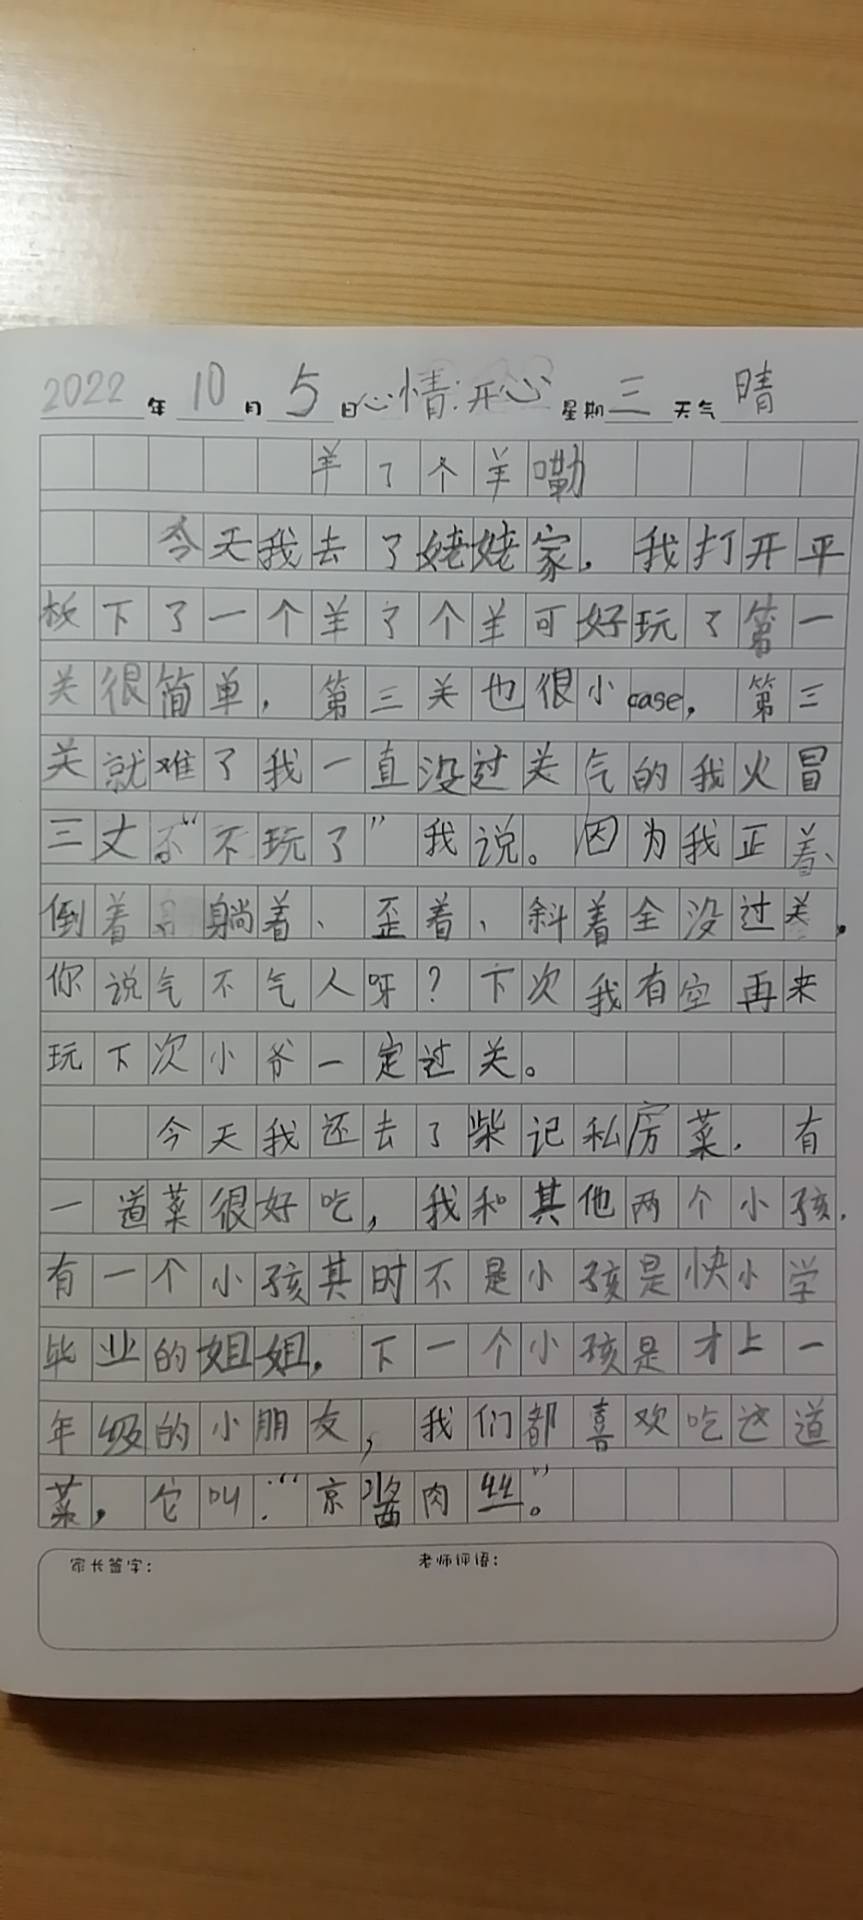 2022年10月5日心情:开心 星期三天气晴
羊了个羊嘞
今天我去了姥姥家，我打开平
板下了一个羊了个羊可好玩了第一
关很简单，第三关也很小case，第三
关就难了我一直没过关气的我火冒
三丈“不玩了”我说。因为我正着、
倒着、躺着、歪着、斜着全没过关，
你说气不气人呀？下次我有空再来
玩下次小爷一定过关。
今天我还去了柴记私房菜，有
一道菜很好吃，我和其他两个小孩，
有一个小孩其时不是小孩是快小学
毕业的姐姐，下一个小孩是才上一
年级的小朋友，我们都喜欢吃这道
菜，它叫：“京酱肉丝”。
家长签字： 老师评语：